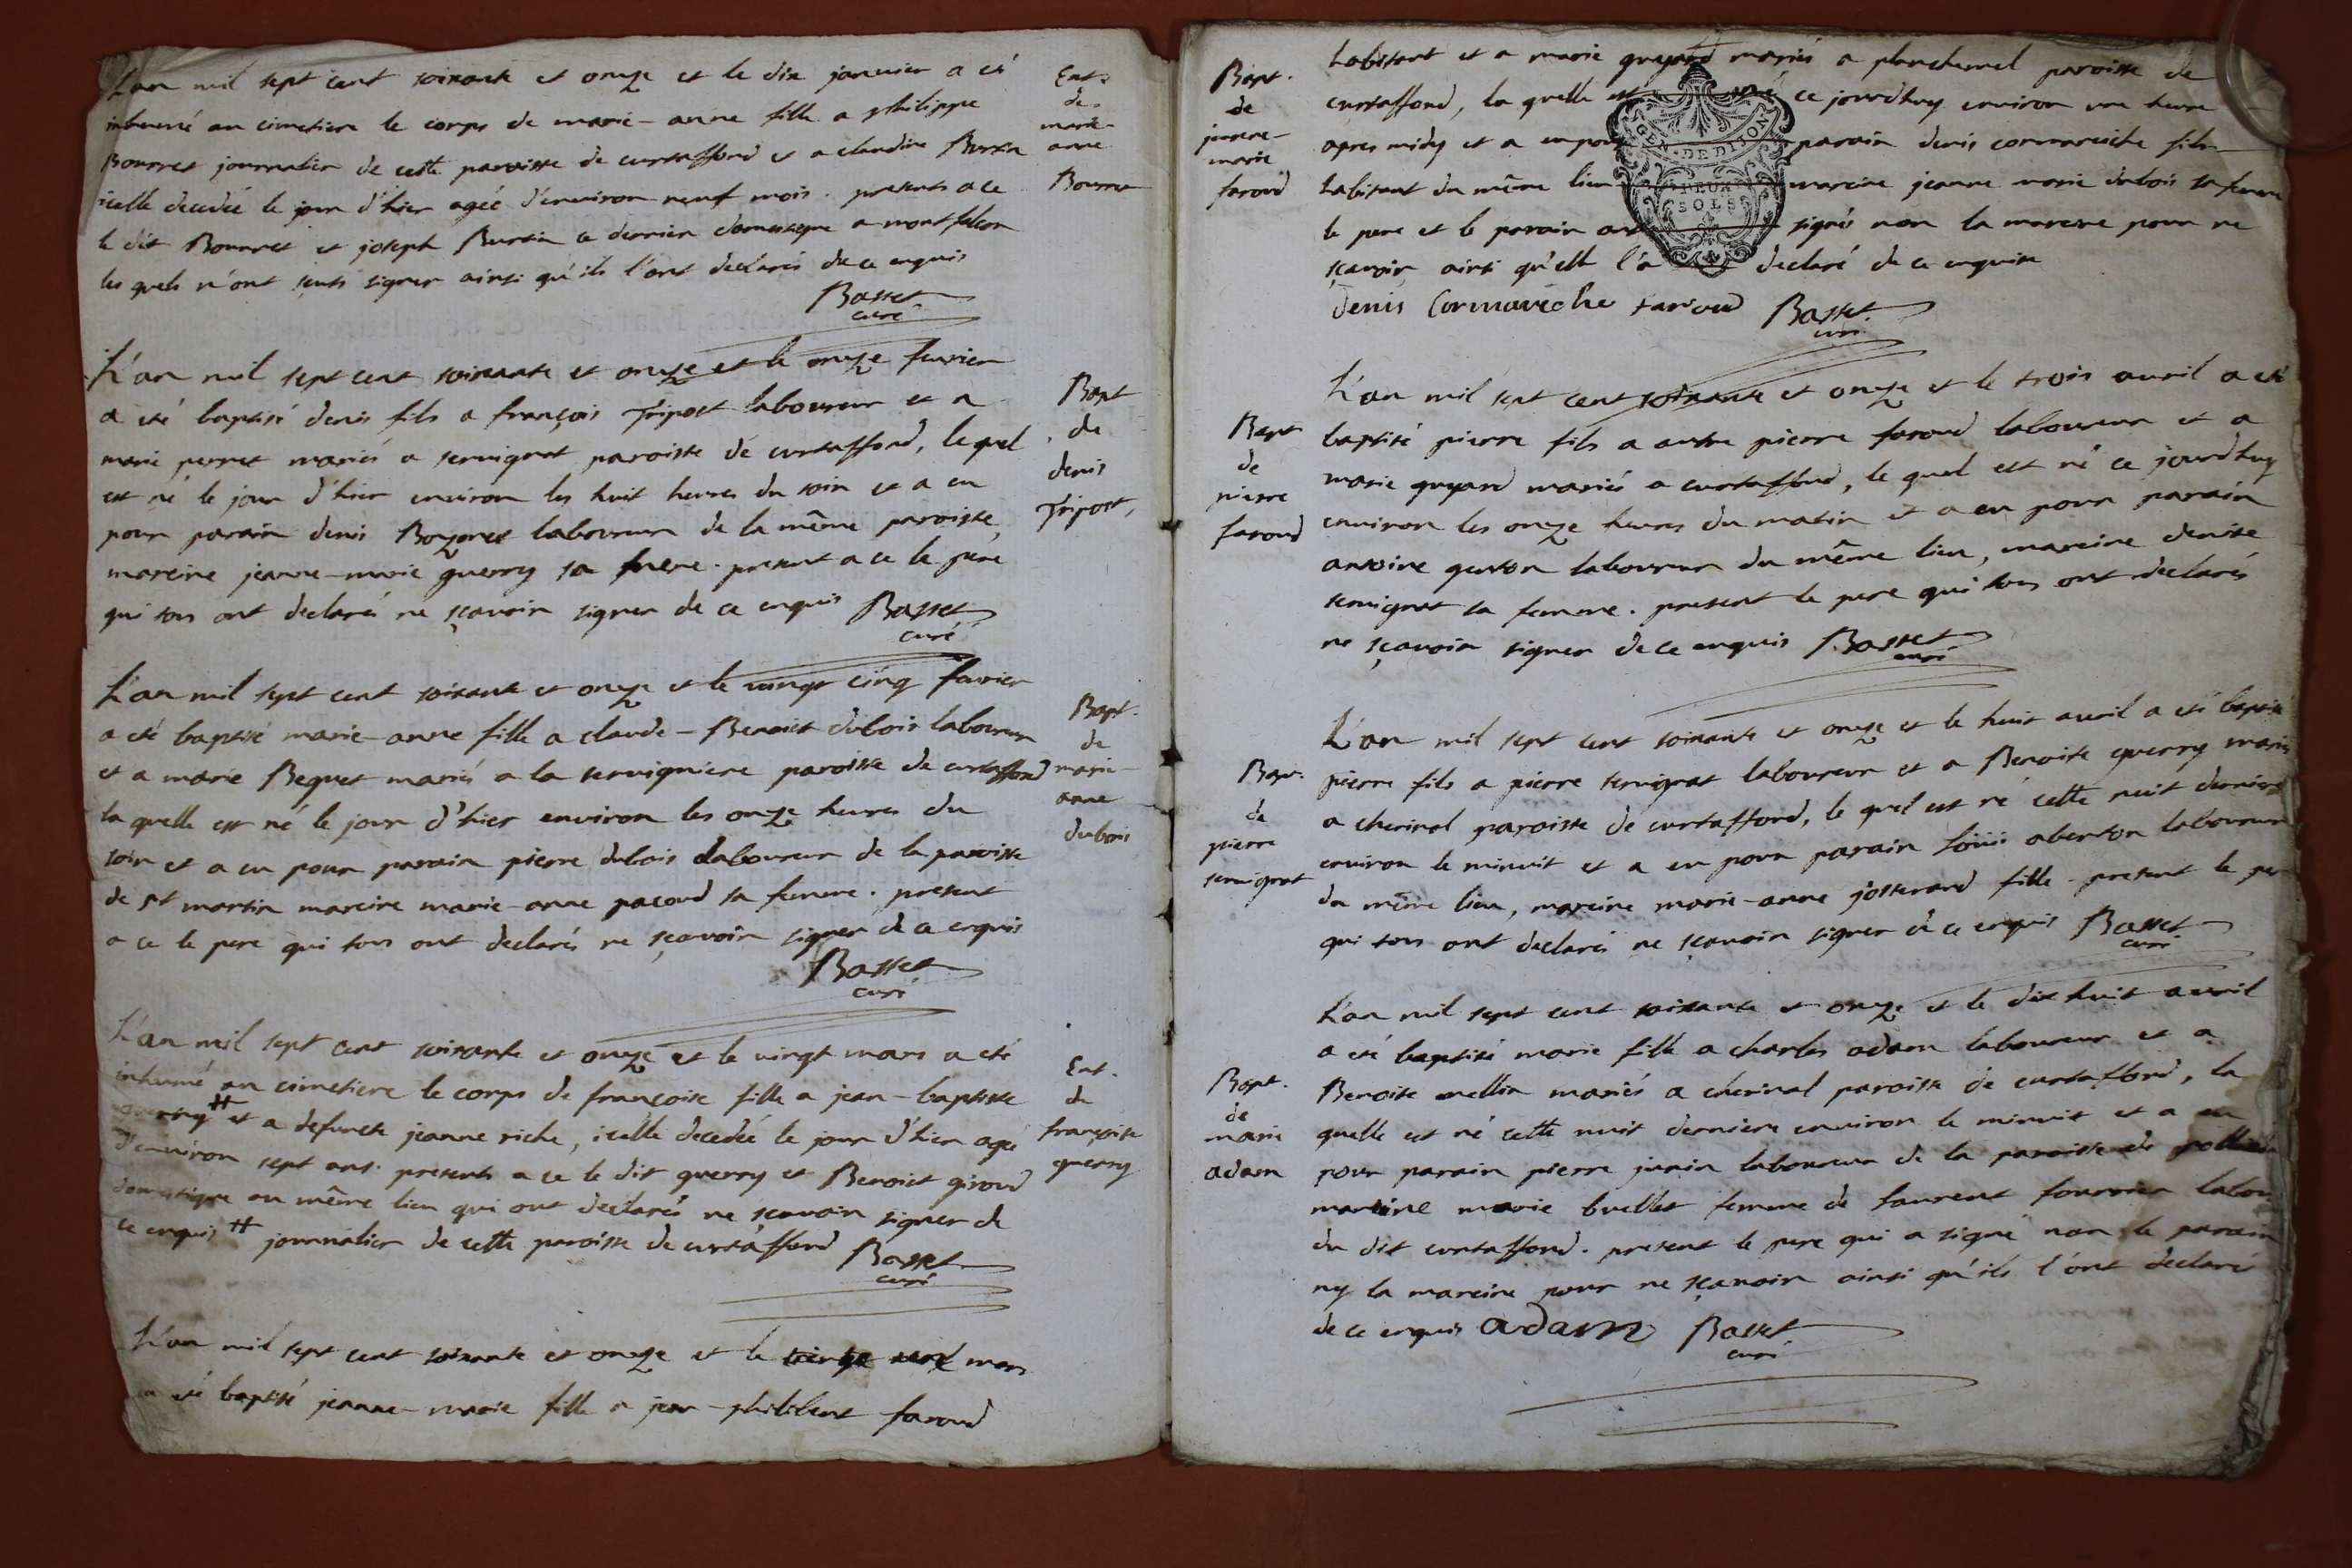 L'an mil sept cent soixante et onze et le dix janvier a été
inhumé au cimetiere le corps de marie-anne fille a philippe
Bourret journalier de cette paroisse de curtaffond et a claudine Burtin
icelle decedée le jour d'hier agéé d'environ neuf mois. presents a ce
le dit Bourret et joseph Burtin ce dernier domestique a montfalcon
les quels n'ont sçeus signer ainsi qu'ils l'ont declarés de ce enquis
Basset
curé
Ent.
de
marie-
anne
Bourret
L'an mil sept cent soixante et onze et le onze fevrier
a été baptisé denis fils a françois Tripost laboureur et a
marie perret mariés a servignat paroisse de curtaffond, le quel
est né le jour d'hier environ les huit heures du soir et a eu
pour parain denis Bozonet laboureur de la même paroisse,
mareine jeanne-marie guerry sa . present a ce le pere
qui tous ont declarés ne sçavoir signer de ce enquis Basset
curé
Bapt
de
denis
Tripost,
L'an mil sept cent soixante et onze et le vingt cinq fevrier
a été baptisé marie-anne fille a claude-Benoict dubois laboureur
et a marie Bequet mariés a la servigniere paroisse de curtaffond
la quelle est né le jour d'hier environ les onze heures du
soir et a eu pour parain pierre dubois laboureur de la paroisse
de st martin mareine marie-anne pacoud sa femme. present
a ce le pere qui tous ont declarés ne sçavoir signer de ce enquis
Basset
curé
Bapt.
de
marie-
anne
dubois
L'an mil sept cent soixante et onze et le vingt mars a été
inhumé au cimetiere le corps de françoise fille a jean-baptiste
guerry # et a defuncte jeanne riche, icelle decedée le jour d'hier agé
d'environ sept ans. presents a ce le dit guerry et Benoict giroud
domestique au même lieu qui ont declarés ne sçavoir signer de
ce enquis # journalier de cette paroisse de curtaffond Basset
curé
Ent.
de
françoise
guerry
L'an mil sept cent soixante et onze et le mars
a été baptisé jeanne-marie fille a jean-philibert faroud
Bapt.
de
jeanne-
marie
faroud
habitant et a marie guyard mariés a planchemel paroisse de
curtaffond, la quelle est né ce jourd'huy environ une heure
apres midy et a eu pour parain denis cormareiche fils
habitant du même lieu mareine jeanne marie dubois sa femme
le pere et le parain ont signés non la mareine pour ne
sçavoir ainsi qu'elle l'a declaré de ce enquise
GEN. DE DIJON
DEUX
SOLS
denis Cormareche faroud Basset
curé
Bapt
de
pierre
faroud
L'an mil sept cent soixante et onze et le trois avril a été
baptisé pierre fils a autre pierre faroud laboureur et a
marie guyard mariés a curtaffond, le quel est né ce jourd'huy
environ les onze heures du matin et a eu pour parain
antoine laboureur du même lieu, mareine denise
servignat sa femme. present le pere qui tous ont declarés
ne sçavoir signer de ce enquis Basset
curé
Bapt.
de
pierre
servignat
L'an mil sept cent soixante et onze et le huit avril a été baptisé
pierre fils a pierre servignat laboureur et a Benoite guerry mariés
a cherinal paroisse de curtaffond, le quel est né cette nuit derniere
environ le minuit et a eu pour parain loüis oberton laboureur
du même lieu, mareine marie-anne josserand fille. present le pere
qui tous ont declarés ne sçavoir signer de ce enquis Basset
curé
Bapt.
de
marie
adam
L'an mil sept cent soixante et onze et le dix huit avril
a été baptisé marie fille a charles adam laboureur et a
Benoite mellin mariés a cherinal paroisse de curtaffond, la
quelle est né cette nuit derniere environ le minuit et a eu
pour parain pierre janin laboureur de la paroisse de
mareine marie buellet femme de laurent fournier labou
du dit curtaffond. present le pere qui a signé non le parain
ny la mareine pour ne sçavoir ainsi qu'ils l'ont declaré
de ce enquis adam Basset
curé